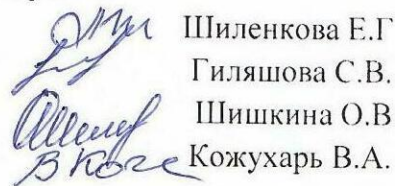 Шиленкова Е.Г
Гиляшова С.В.
Шишкина О.В
Кожухарь В.А.